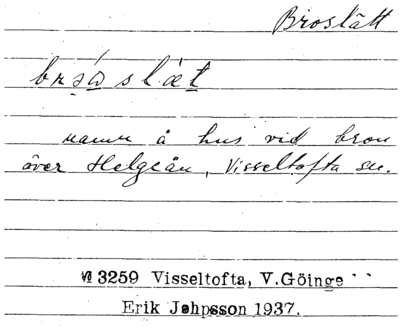 Broslätt
brəω slæt
namn å hus vid bron
över Helgeån, Visseltofta sn.
M 3259 Visseltofta, V.Göinge
Erik Jehpsson 1937.